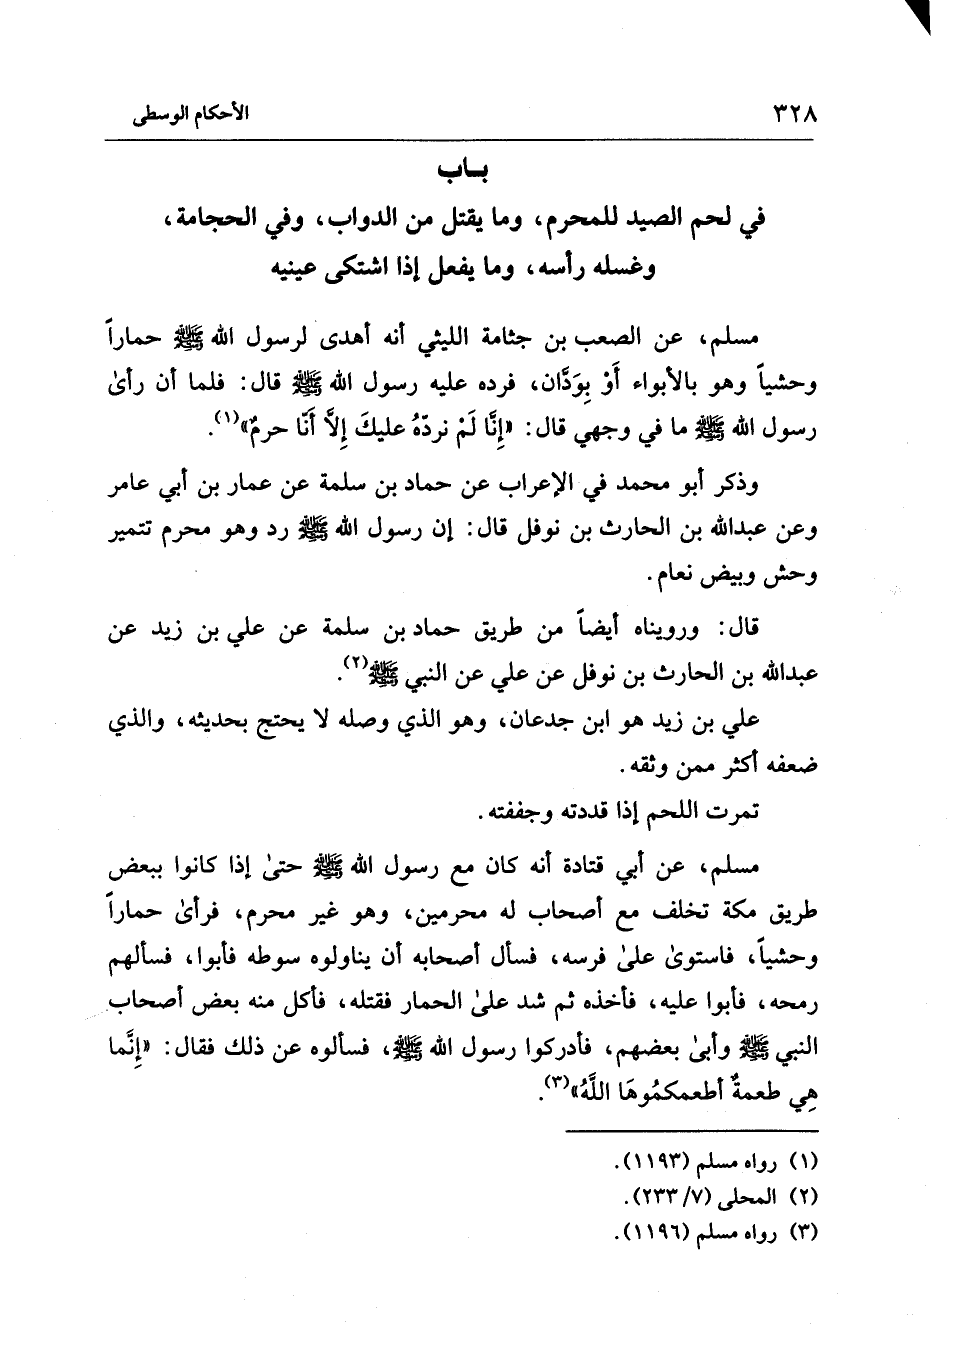 ٣٢٨ الأحكام الوسطى
بـاب
في لحم الصيد للمحرم، وما يقتل من الدواب، وفي الحجامة،
وغسله رأسه، وما يفعل إذا اشتكى عينيه
مسلم، عن الصعب بن جثامة الليثي أنه أهدى لرسول الله ﷺ حماراً
وحشياً وهو بالأبواء أَوْ بِوَدَّان، فرده عليه رسول الله ﷺ قال: فلما أن رأىٰ
رسول الله ﷺ ما في وجهي قال: «إِنَّا لَمْ نردّهُ عليكَ إِلاَّ أَنّا حرمٌ»(١).
وذكر أبو محمد في الإعراب عن حماد بن سلمة عن عمار بن أبي عامر
وعن عبدالله بن الحارث بن نوفل قال: إن رسول الله ﷺ رد وهو محرم تتمير
وحش وبيض نعام.
قال: ورويناه أيضاً من طريق حماد بن سلمة عن علي بن زيد عن
عبدالله بن الحارث بن نوفل عن علي عن النبي ﷺ(٢).
علي بن زيد هو ابن جدعان، وهو الذي وصله لا يحتج بحديثه، والذي
ضعفه أكثر ممن وثقه.
تمرت اللحم إذا قددته وجففته.
مسلم، عن أبي قتادة أنه كان مع رسول الله ﷺ حتىٰ إذا كانوا ببعض
طريق مكة تخلف مع أصحاب له محرمين، وهو غير محرم، فرأىٰ حماراً
وحشياً، فاستوىٰ علىٰ فرسه، فسأل أصحابه أن يناولوه سوطه فأبوا، فسألهم
رمحه، فأبوا عليه، فأخذه ثم شد علىٰ الحمار فقتله، فأكل منه بعض أصحاب
النبي ﷺ وأبىٰ بعضهم، فأدركوا رسول الله ﷺ، فسألوه عن ذلك فقال: «إِنَّما
هِي طعمةٌ أطعمكمُوهَا اللَّهُ»(٣).
(١) رواه مسلم (١١٩٣).
(٢) المحلى (٧/ ٢٣٣).
(٣) رواه مسلم (١١٩٦).